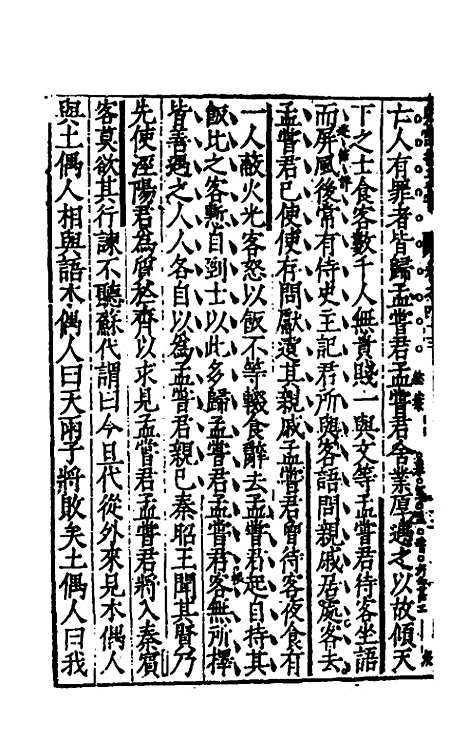 亡人有罪者皆歸孟嘗君孟嘗君舍業厚遇之以故傾天
下之士食客數千人無貴賤一與文等孟嘗君待客坐語
而屏風後常有侍史主記君所與客語問親戚居處客去
孟嘗君已使使存問獻遺其親戚孟嘗君曾待客夜食有
一人蔽火光客怒以飯不等輟食辭去孟嘗君起自持其
飯比之客慚自剄士以此多歸孟嘗君孟嘗君客無所擇
皆善遇之人人各自以為孟嘗君親已秦昭王聞其賢乃
先使涇陽君為質於齊以求見孟嘗君孟嘗君將入秦賓
客莫欲其行諫不聽蘇代謂曰今旦代從外來見木偶人
與土偶人相與語木偶人曰天雨子將敗矣土偶人曰我